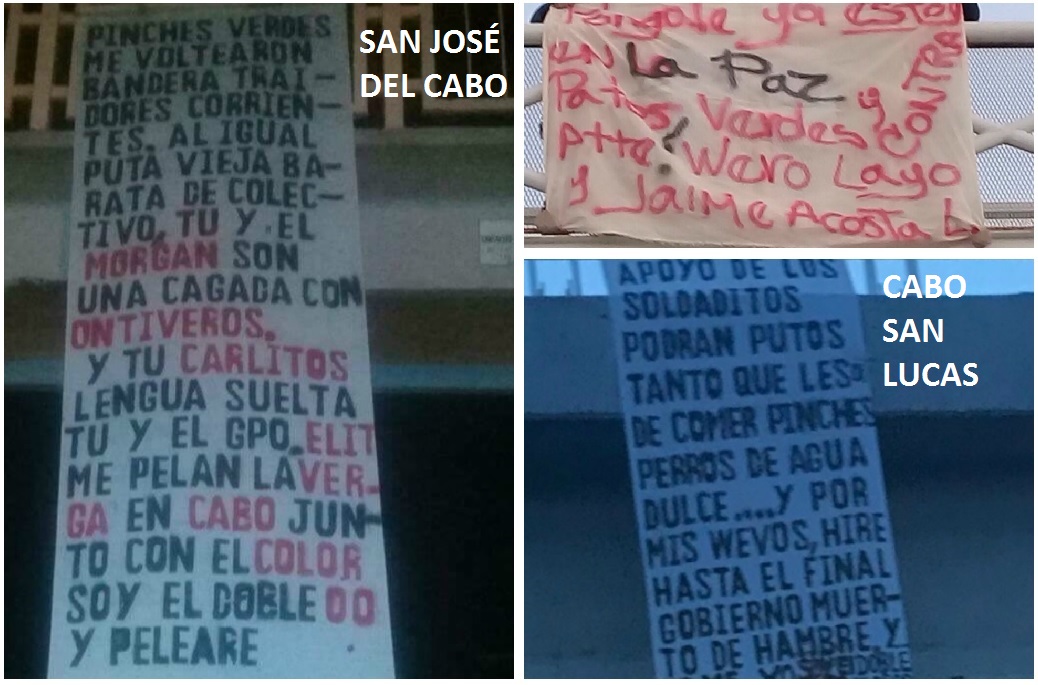 SAN JOSÉ
DEL CABO
PINCHES VERDES
ME VOLTEARON
BANDERA TRAI-
DORES CORRIEN-
TES. AL IGUAL
PUTA VIEJA BA-
RATA DE COLEC-
TIVO, TU Y EL
MORGAN SON
UNA CAGADA CON
ONTIVEROS.
Y TU CARLITOS
LENGUA SUELTA
TU Y EL GPO. ELIT
ME PELAN LA VER-
GA EN CABO JUN-
TO CON EL COLOR
SOY EL DOBLE OO
Y PELEARE
Pángale ya estoy
EN La Paz y CONTRA
Patas Verdes
Atte: Wero Layo
y Jaime Acosta L.
CABO
SAN
LUCAS
APOYO DE LOS
SOLDADITOS
PODRAN PUTOS
TANTO QUE LES
DE COMER PINCHES
PERROS DE AGUA
DULCE....Y POR
MIS WEVOS, HIRE
HASTA EL FINAL
GOBIERNO MUER-
TO DE HAMBRE Y
YO SOY EL DOBLE